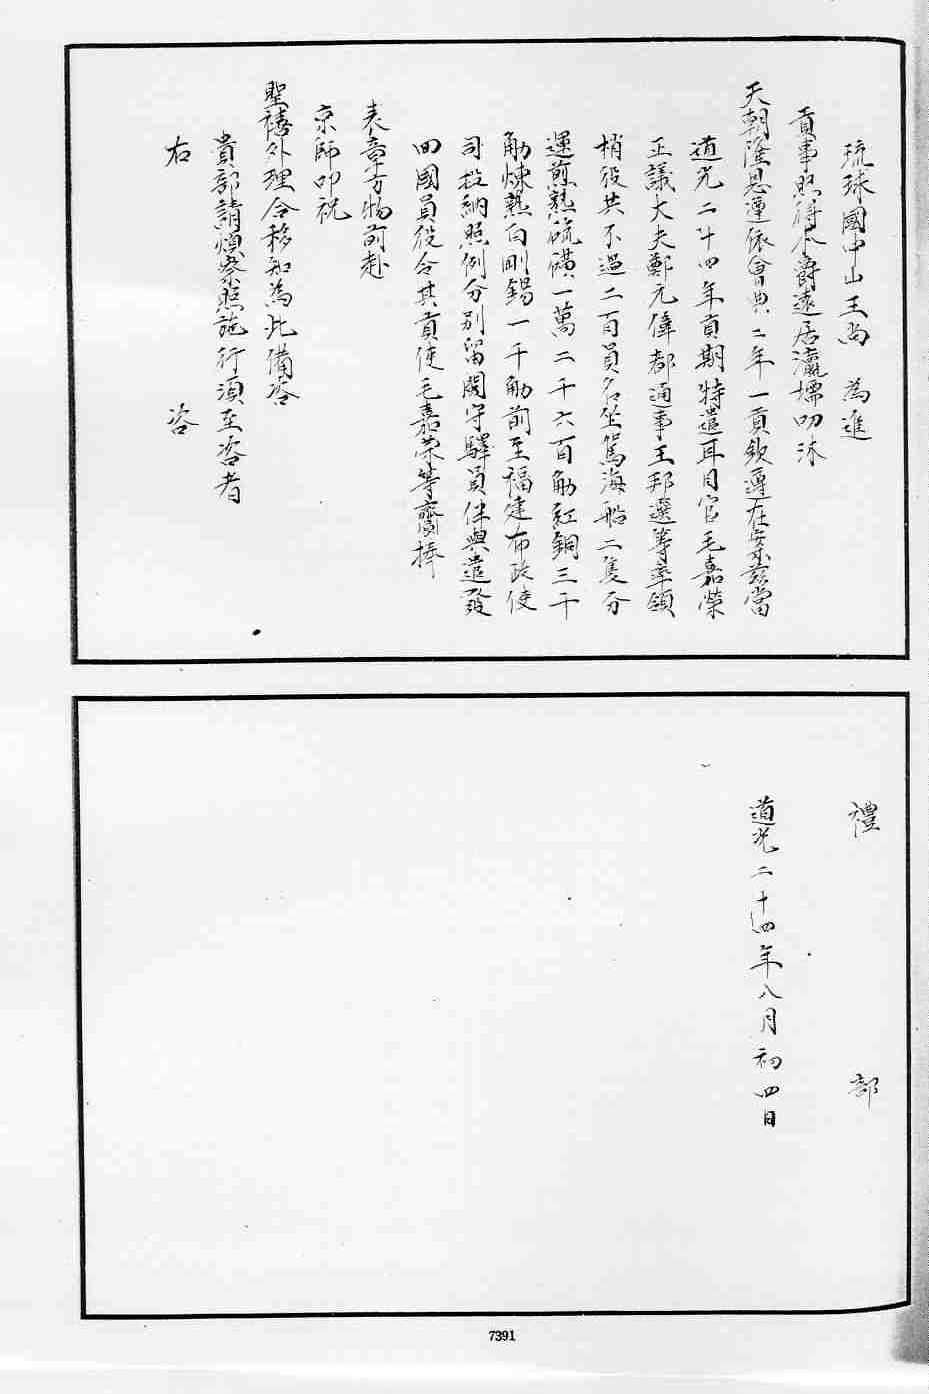 琉球國中山王尚　為進
貢事照得本爵遠居瀛壖叨沐
天朝隆恩遵依會典二年一貢欽遵在案茲當
道光二十四年貢期特遣耳目官毛嘉榮
正議大夫鄭元偉都通事王邦選等率領
梢役共不過二百員名坐駕海船二隻分
運煎熟硫磺一萬二千六百觔紅銅三千
觔煉熟白剛錫一千觔前至福建布政使
司投納照例分別留閩守驛員伴與遣發
回國員役令其貢使毛嘉榮等齎捧
表章方物前赴
京師叩祝
聖禧外理合移知為此備咨
貴部請煩察照施行須至咨者
右　咨
禮　部
道光二十四年八月初四日
7391